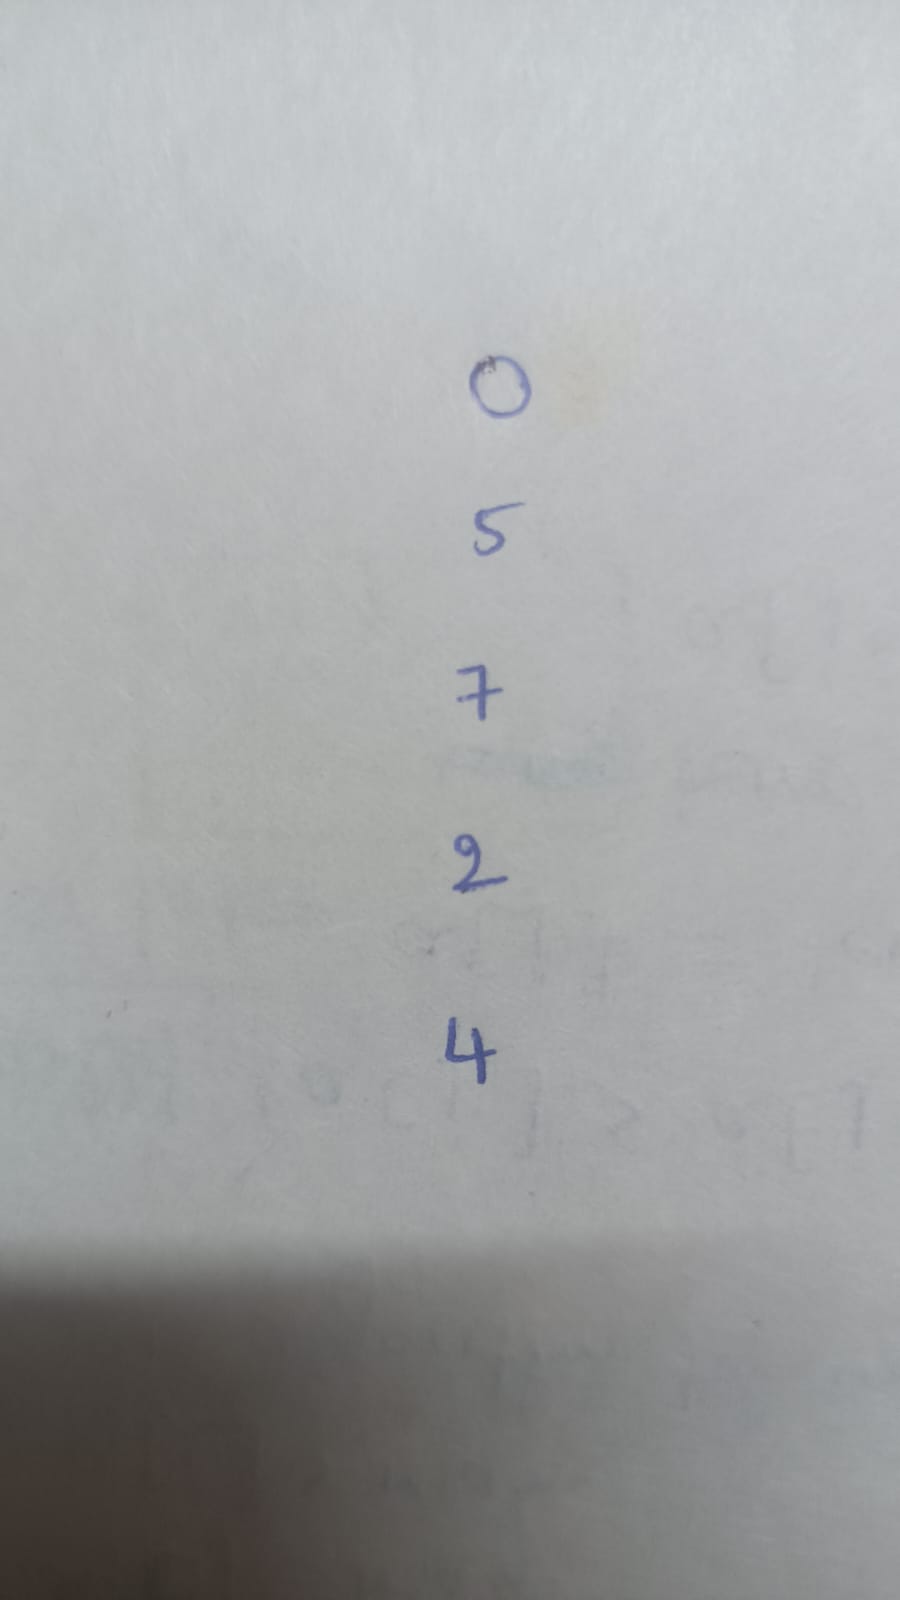 0
5
7
2
4